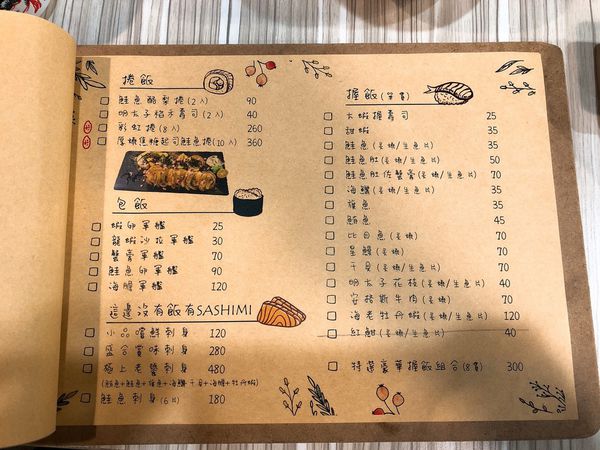 捲飯
鮭魚酪梨捲(2入) 90
明太子稻禾壽司(2入) 40
彩虹捲(8入) 260
厚燒焦糖起司鮭魚捲(10入) 360
包飯
蝦卵軍艦 25
龍蝦沙拉軍艦 30
蟹膏軍艦 70
鮭魚卵軍艦 70
海膽軍艦 120
這邊沒有飯有SASHIMI
小品嚐鮮刺身 120
盛合賞味刺身 280
極上老饕刺身 480
鮭魚刺身(6片) 180
握飯(單貫)
大蝦握壽司 25
甜蝦 35
鮭魚(炙燒/生魚片) 35
鮭魚肚(炙燒/生魚片) 50
鮭魚肚佐蟹膏(炙燒/生魚片) 70
海鱺(炙燒/生魚片) 35
旗魚 35
鮪魚 45
比目魚(炙燒) 70
星鰻(炙燒) 70
干貝(炙燒/生魚片) 70
明太子花枝(炙燒/生魚片) 40
安格斯牛肉(炙燒) 70
海老牡丹蝦(炙燒/生魚片) 120
紅魽(炙燒/生魚片) 40
特選豪華握飯組合(8貫) 300